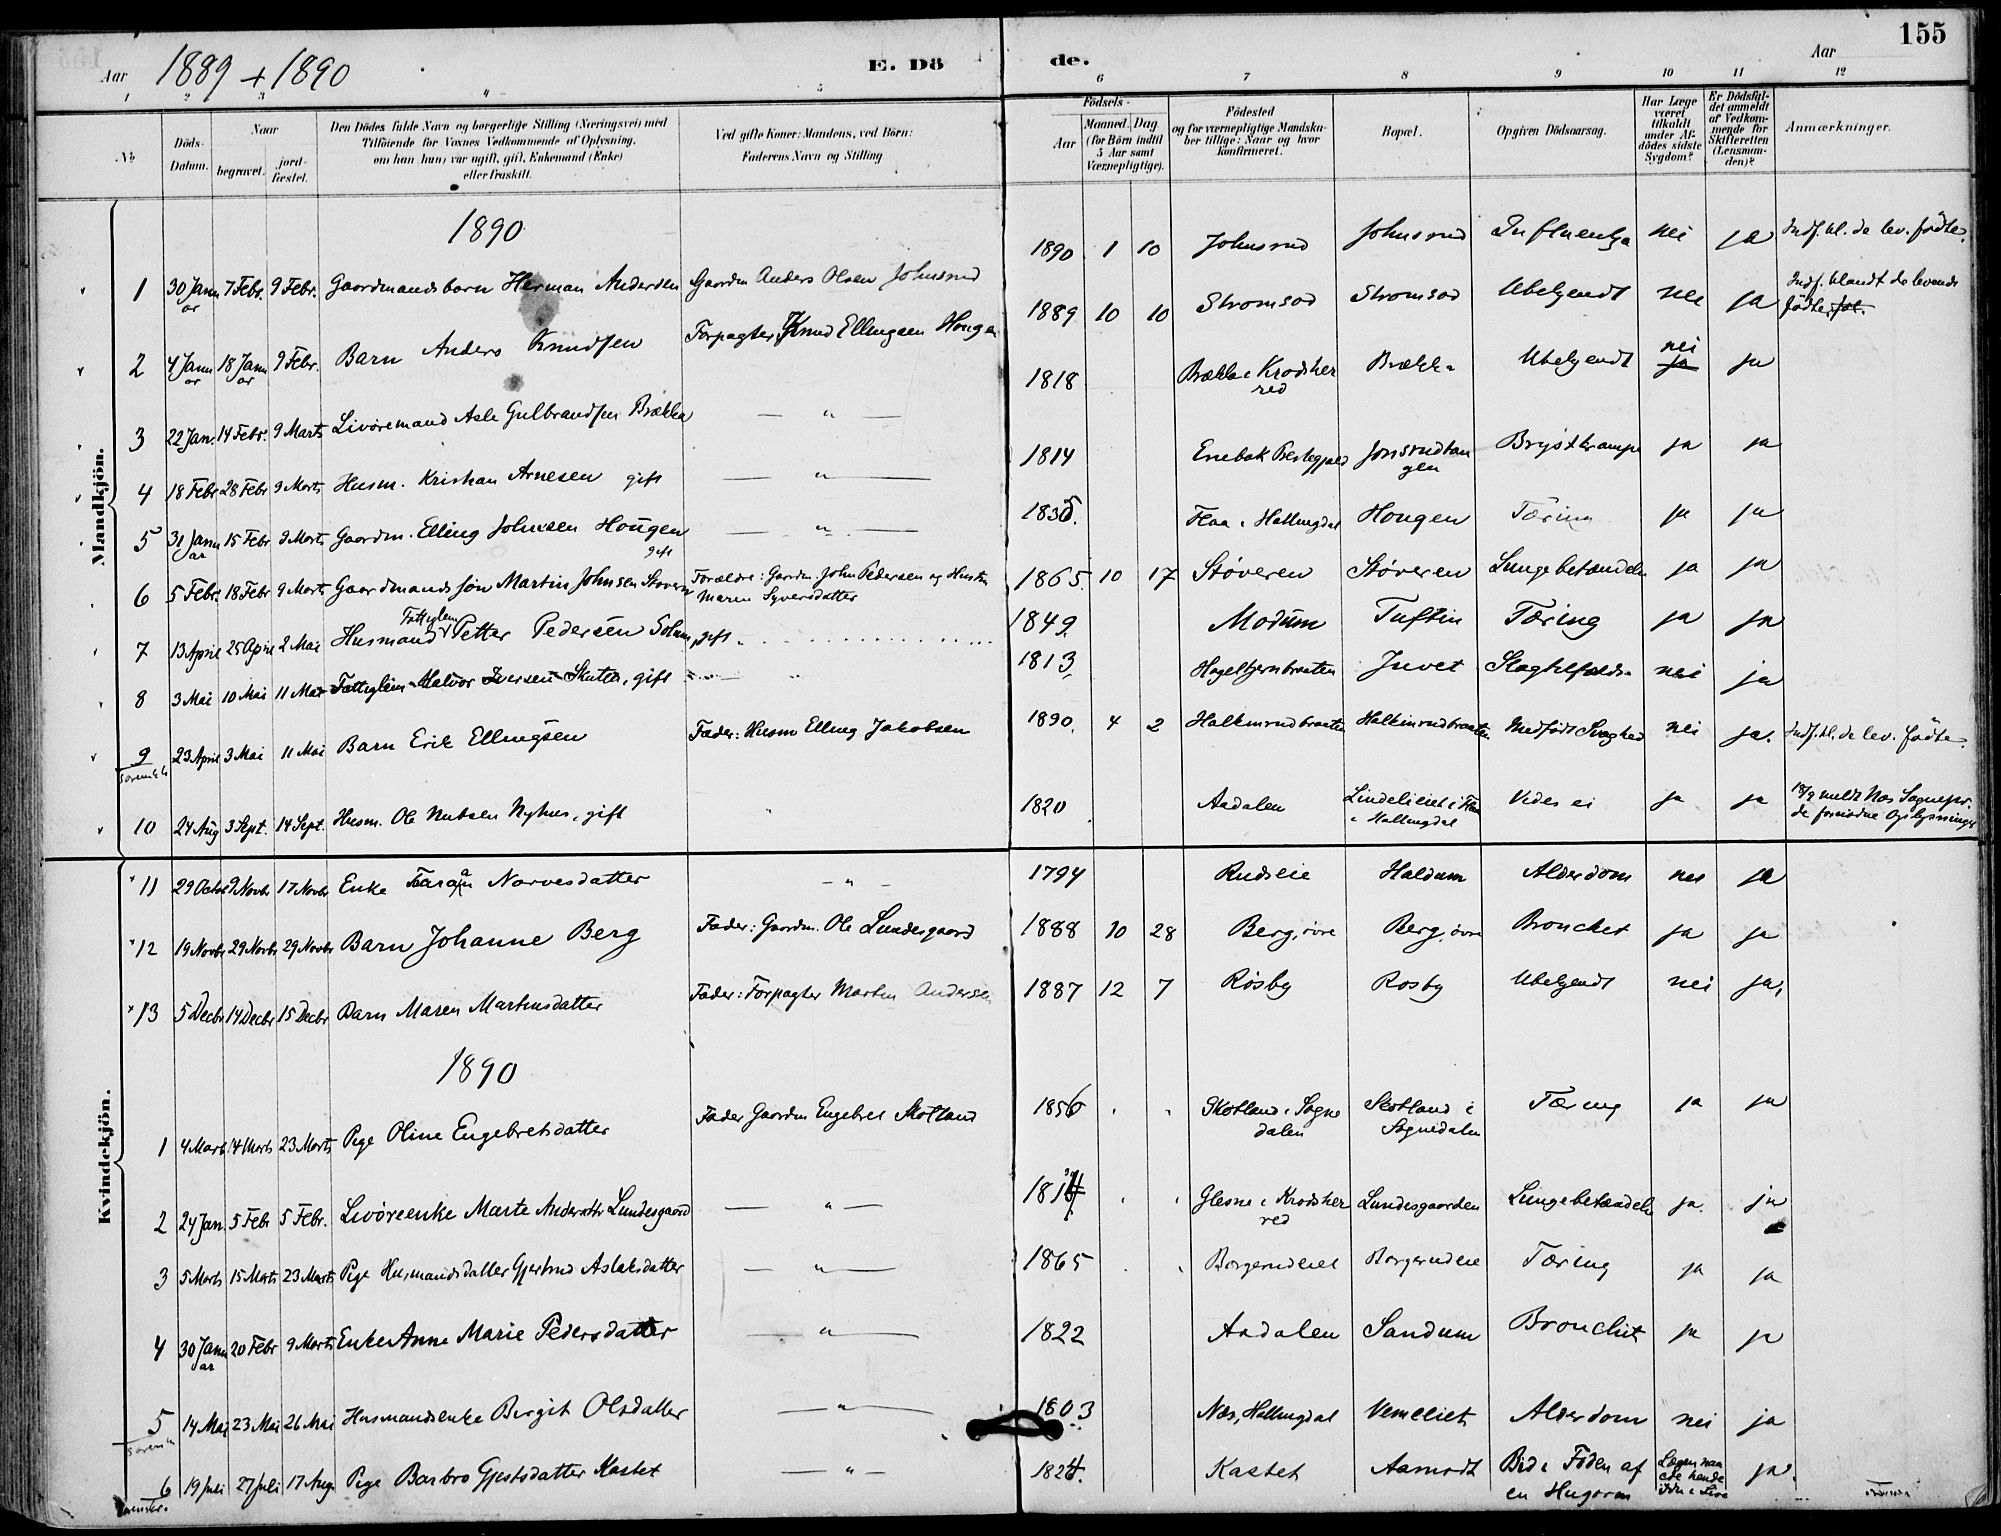 155
Aar 1889 + 1890 E. Dö de. Aar
1 2 3 4 5 6 7 8 9 10 11 12
No.
Döds-Datum.
Naar begravet. jordfæstet.
Den Dödes fulde Navn og borgerlige Stilling (Næringsvei) med Tilföiende for Voxnes Vedkommende af Oplysning, om han (hun) var ugift, gift, Enkemand (Enke) eller fraskilt.
Ved gifte Koner: Mandens, ved Börn: Faderens Navn og Stilling
Födsels-
Aar
Maaned. Dag (for Börn indtil 5 Aar samt Værnepligtige).
Födested og for værnepligtige Mandskaber tillige: Naar og hvor konfirmeret.
Bopæl.
Opgiven Dödsaarsag.
Har Læge været tilkaldt under Afdödes sidste Sygdom?
Er Dödsfaldet anmeldt af Vedkommende for Skifteretten (Lensmanden)?
Anmærkninger.
Mandkjön.
1890
1 30 Januar 7 Febr. 9 Febr. Gaardmandsbarn Herman Andersen Gaardm Anders Olsen Johnsrud 1890 1 10 Johnsrud Johnsrud Influenza nei ja Indf. bl. de lev. födte.
2 4 Januar 18 Januar 9 Febr. Barn Anders Knudsen Forpagter Knud Ellingsen Hougen 1889 10 10 Stromsod Stromsod Ubekjendt nei ja Indf. blandt de levende födte
3 22 Jan. 14 Febr. 9 Marts Livöremand Asle Gulbrandsen Brække — " — 1818 Brække i Krodsherred Brække Ubekjendt nei ja ja
4 18 Febr 28 Febr 9 Marts Husm. Kristian Arnesen gift — " — 1814 Enebak Prestegjæld Jonsrudtangen Brystkrampe ja ja
5 31 Januar 15 Febr 9 Marts Gaardm. Elling Johnsen Hougen gift — " — 1835. Flaa i Hallingdal Hougen Tæring ja ja
6 5 Febr. 18 Febr 9 Marts Gaardmandssön Martin Johnsen Støveren Forældre: Gaardm John Pedersen og Hustru Maren Syversdatter 1865 10 17 Støveren Støveren Lungebetændelse ja ja
7 13 April 25 April 2 Mai Husmand Fattiglem Petter Pedersen Solum, gift. 1849. Modum Tuftin Tæring ja ja
8 3 Mai 10 Mai 11 Mai Fattiglem Halvor Iversen Skutes, gift 1813. Hagelkjernbraaten Juvet Slagtilfælde nei ja
9 23 April 3 Mai 11 Mai Barn Erik Ellingsen Fader: Husm Elling Jakobsen 1890. 4 2 Halkinrudbraaten Halkinrudbraaten Medfödt Svaghed nei ja. Indf. bl. de lev. födte.
10 24 Aug 3 Sept. 14 Sept. Husm. Ole Nubsen Nyhus, gift " 1820 Aadalen Lindelieiet i Flaa i Hallingdal Vides ei ja ja 18/9 meldt Nes Sognepr. de fornödne Oplysninger
Kvindekjön.
11 29 Octbr 9 Novbr 17 Novbr Enke Narvesdatter — " — 1794 Rudseie Haldum Alderdom nei ja
12 19 Novbr 29 Novbr 29 Novbr Barn Johanne Berg Fader: Gaardm. Ole Lundesgaard 1888 10 28 Berg, övre Berg, övre Bronchit ja ja
13 5 Decbr 14 Decbr 15 Decbr Barn Maren Martinsdatter Fader: Forpagter Martin Andersen 1887 12 7 Rösby Rosby Ubekjendt nei ja.
1890
1 4 Marts 14 Marts 23 Marts Pige Oline Engebretsdatter Fader Gaardm Engebret Skotland 1856 Skotland i Sognedalen Skotland i Sognedalen Tæring ja ja
2 24 Jan 5 Febr 5 Febr. Livöreenke Marte Andersdtr Lundesgaard — " — Glesne i Krodsherred Lundesgaarden Lungebetændelse ja. ja
3 5 Marts 15 Marts 23 Marts Pige Husmandsdatter Gjertrud Aslaksdatter — " — 1865 Borgerudeiet Borgerudeie Tæring ja ja
4 30 Januar 20 Febr 9 Marts Enke Anne Marie Pedersdatter — " — 1822 Aadalen Sandum Bronchit ja ja
5 14 Mai 23 Mai 26 Mai Husmandsenke Birgit Olsdatter — " — 1803 Næs, Hallingdal Vemeliet Alderdom nei ja
6 19 Juli 27 Juli 17 Aug Pige Barbro Gjestsdatter Kastet — " — 1824. Kastet Aamodt Bid i Foden af en Hugorm Lægen naaede hende ikke i Live ja.